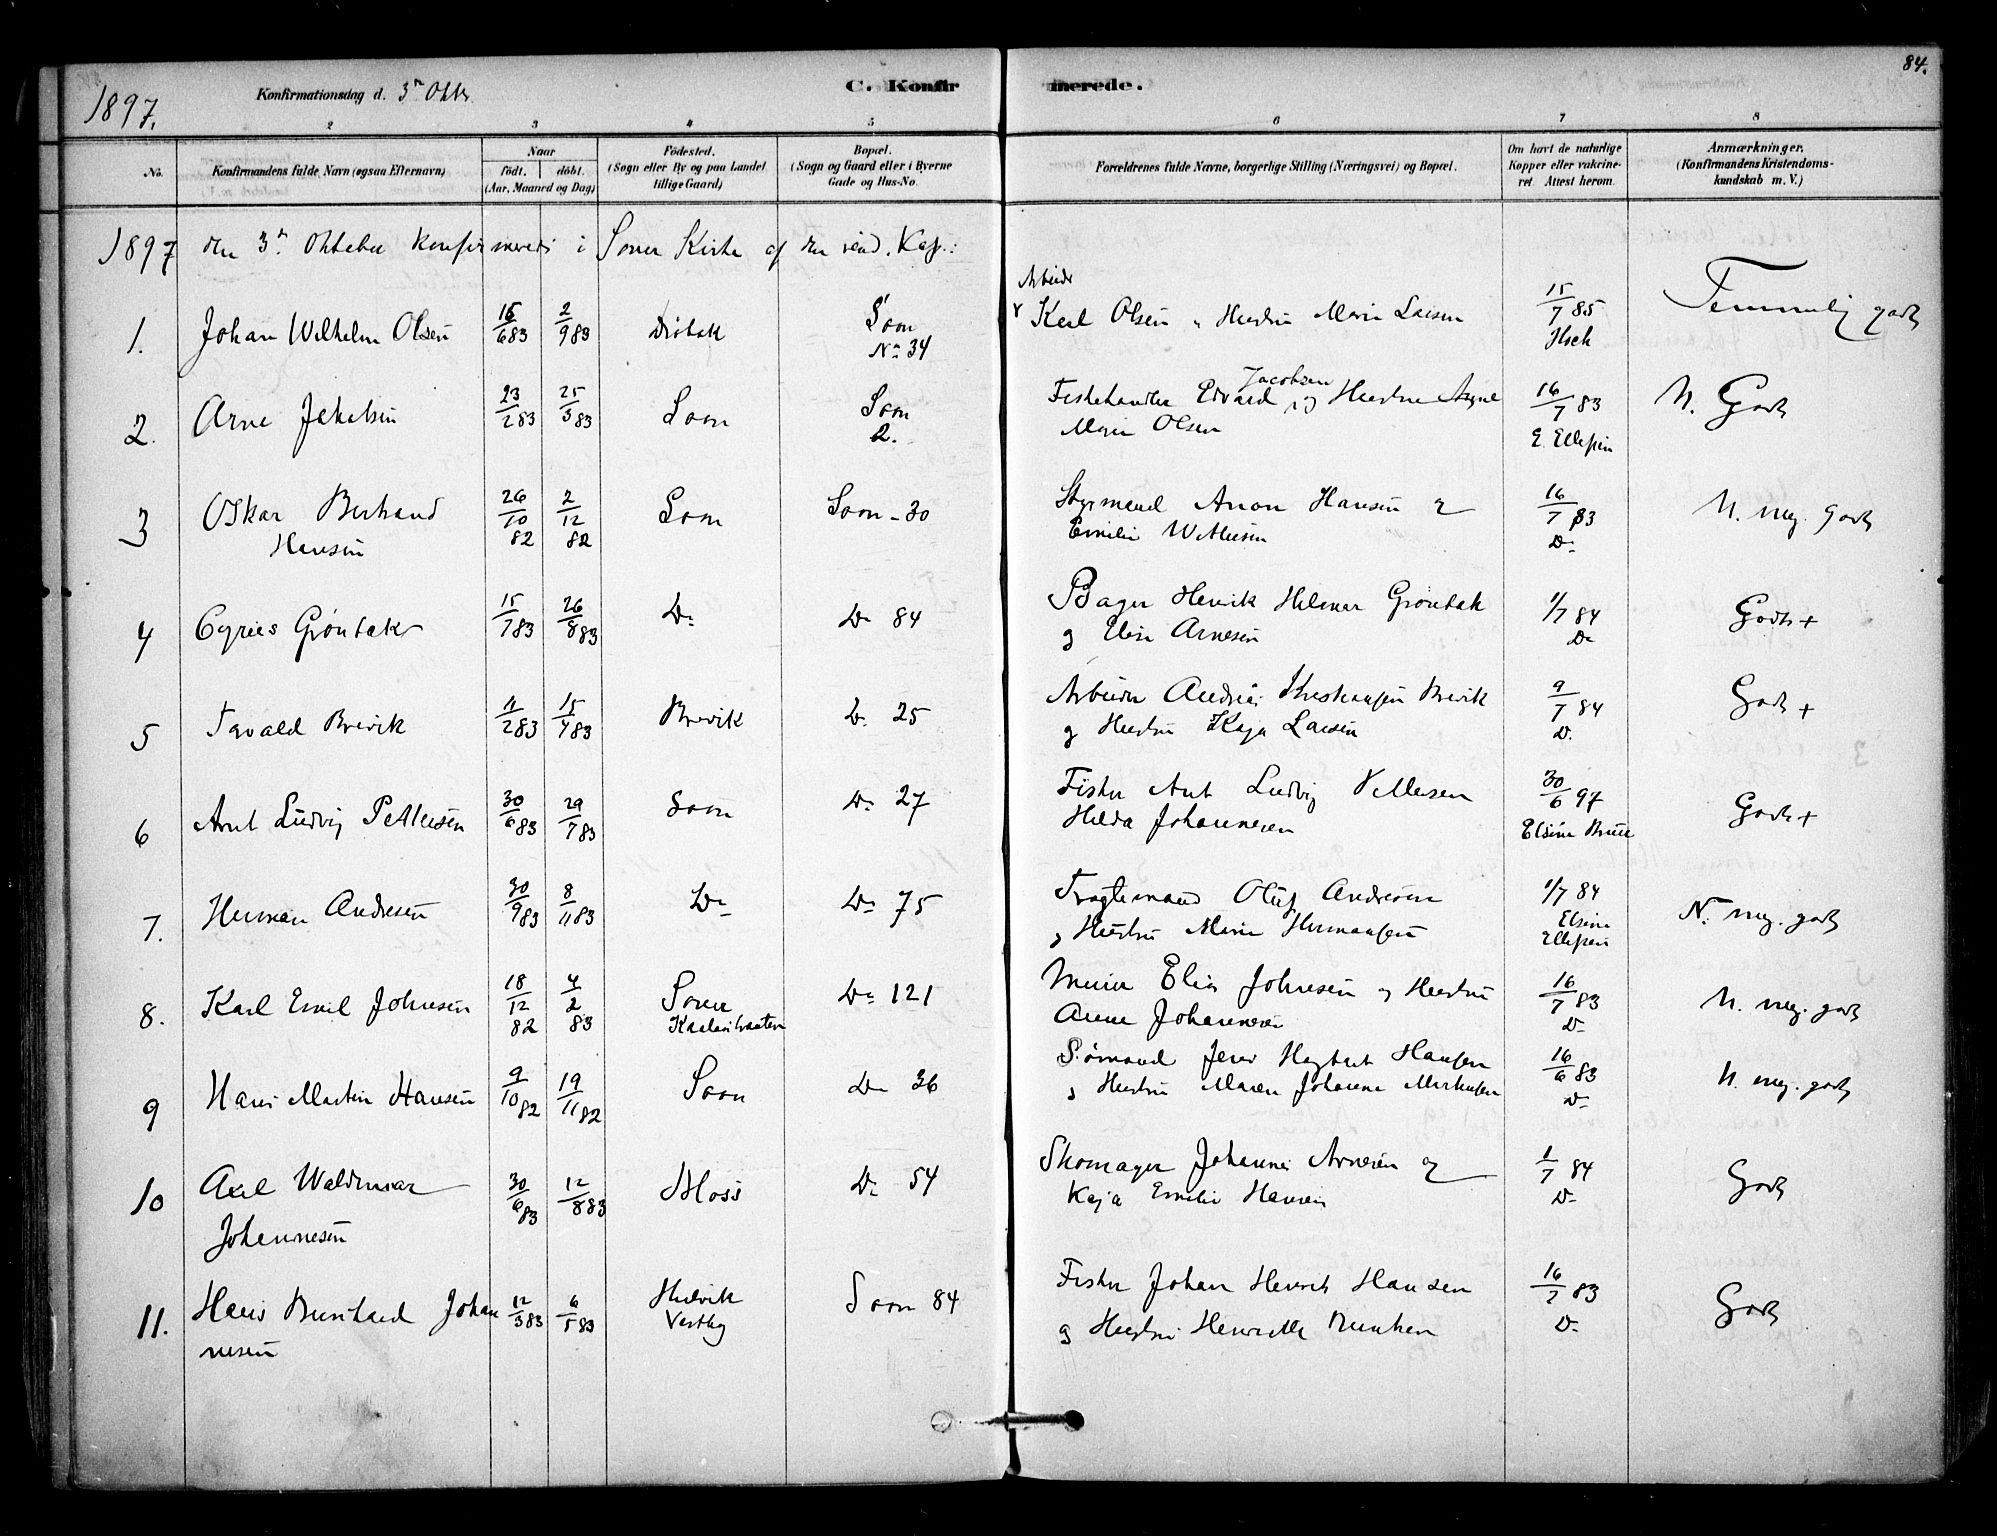 84.
1897.
Konfirmationsdag d. 3die Oktbr
C. Konfirmerede.
2 3 4 5 6 7 8
No. Konfirmandens fulde Navn (ogsaa Efternavn) Naar født. døbt. (Aar, Maaned og Dag) Fødested. (Sogn eller By og paa Landet tillige Gaard) Bopæl. (Sogn og Gaard eller i Byerne Gade og Hus-No. Forældrenes fulde Navne, borgerlige Stilling (Næringsvei) og Bopæl. Om havt de naturlige Kopper eller vakcineret. Attest herom. Anmærkninger. (Konfirmandens Kristendomskundskab m. V.)
1897 den 3die Oktober konfirmereds i Soner Kirke af den resid. Kap.:
Arbeider
1. Johan Wilhelm Olsen 15/6 83 2/9 83 Drøbak Soon No 34 Karl Olsen og Hustru Marie Larsen 15/7 85 Temmelig godt
2. Arne Jakobsen 23/2 83 25/3 83 Soon Soon 2. Fiskehandler Edvard Jacobsen og Hustru Marie Olsen 16/7 83 E. Ellefsen N. Godt
3 Oskar Berhard Hansen 26/10 82 2/12 82 Soon Soon - 30 Styrmand Anton Hansen og Emilie 16/7 83 Do N. meg. godt
4 Cyrus Grønbæk 15/7 83 26/8 83 Do Do 84 Bager Henrik Hilmar Grønbæk og Elise Arnesen 1/7 84 Do Godt +
5 Tovald Brevik 11/2 83 15/4 83 Brevik Do 25 Arbeider Andreas Kristiansen Brevik og Hustru Kaja Larsen 9/7 84 Do Godt +
6 Arnt Ludvig Pettersen 30/6 83 29/7 83 Soon Do 27 Fisker Arnt Ludvig Pettersen Hilda Johannesen 30/6 97 Elsine Godt +
7. Herman Andresen 30/9 83 8/11 83 Do Do 75 Fragtemand Oluf Andresen og Hustru Marie Hermansen 1/7 84 Elsine Ellefsen N. meg. godt
8. Karl Emil Johnsen 18/12 82 4/2 83 Soner Do 121 Murer Elias Johnsen og Hustru Anne Johannesen 16/7 83 Do N. meg. godt
9 Hans Martin Hansen 9/10 82 19/11 82 Soon Do 36 Sømand Jens Hansen og Hustru Maren Johanne 16/6 83 Do N. meg. godt
10 Axel Waldemar Johannesen 30/6 83 12/8 83 Moss Do 54 Skomager Johannes Arnesen og Kaja Emilie Hansen 1/7 84 Do Godt
11. Hans Bernhard Johannesen 12/3 83 6/5 83 Hulvik Vestby Soon 84 Fisker Johan Henrik Hansen og Hustru Henriette 16/7 83 Do Godt